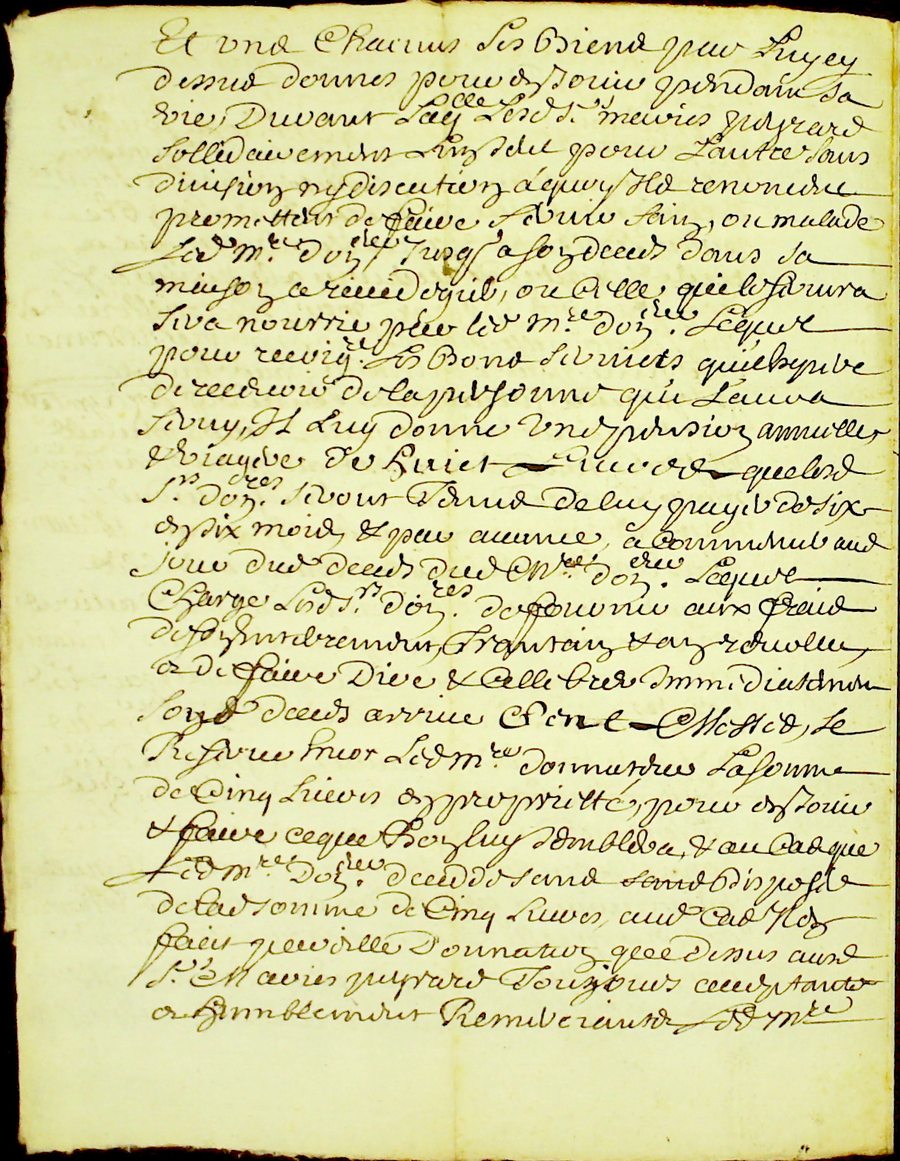 Et une Chacuns ses Biens par luy cy
dessus donnes pour en Jouir pendant sa
vie, Durant Laqlle Lesd. srs maries peyrard
sollidairement Lung seul pour Lautre sans
division ny discution a quoy Ils renoncent
promettent de faire servir sain, ou malade
Led mre donr Jusqs a son deces dans sa
maison et celle qui le servira
sera nourrie par led mre donr. Lequel
pour ses Bons services quil espere
de recevoir de la personne qui Laura
servy, Il Luy donne une pension annuelle
& viagere de huict Livres que lesd
srs donres. seront tenus de luy payer de six
en six mois & par avance, a commencer aud
jour dud deces dud mre donr. Lequel
Charge Lesd srs donres. de fournir aux frais
de son enterrement, trantain & an revollu,
et de faire Dire & Cellebrer Immediatement
son deces arrive Cent Messes, se
Reserve Led mre donnateur La somme
de Cinq Livres en proprietté, pour en Jouir
& faire ceque bon luy semblera, & au Cas que
Led mre Donr. decedde sans avoir disposé
de lad somme de Cinq Livres, aud Cas Il en
fait pareille Donnation que dessus ausd
srs Maries peyrard Toujours acceptants
et humblement Remerciants Led mre